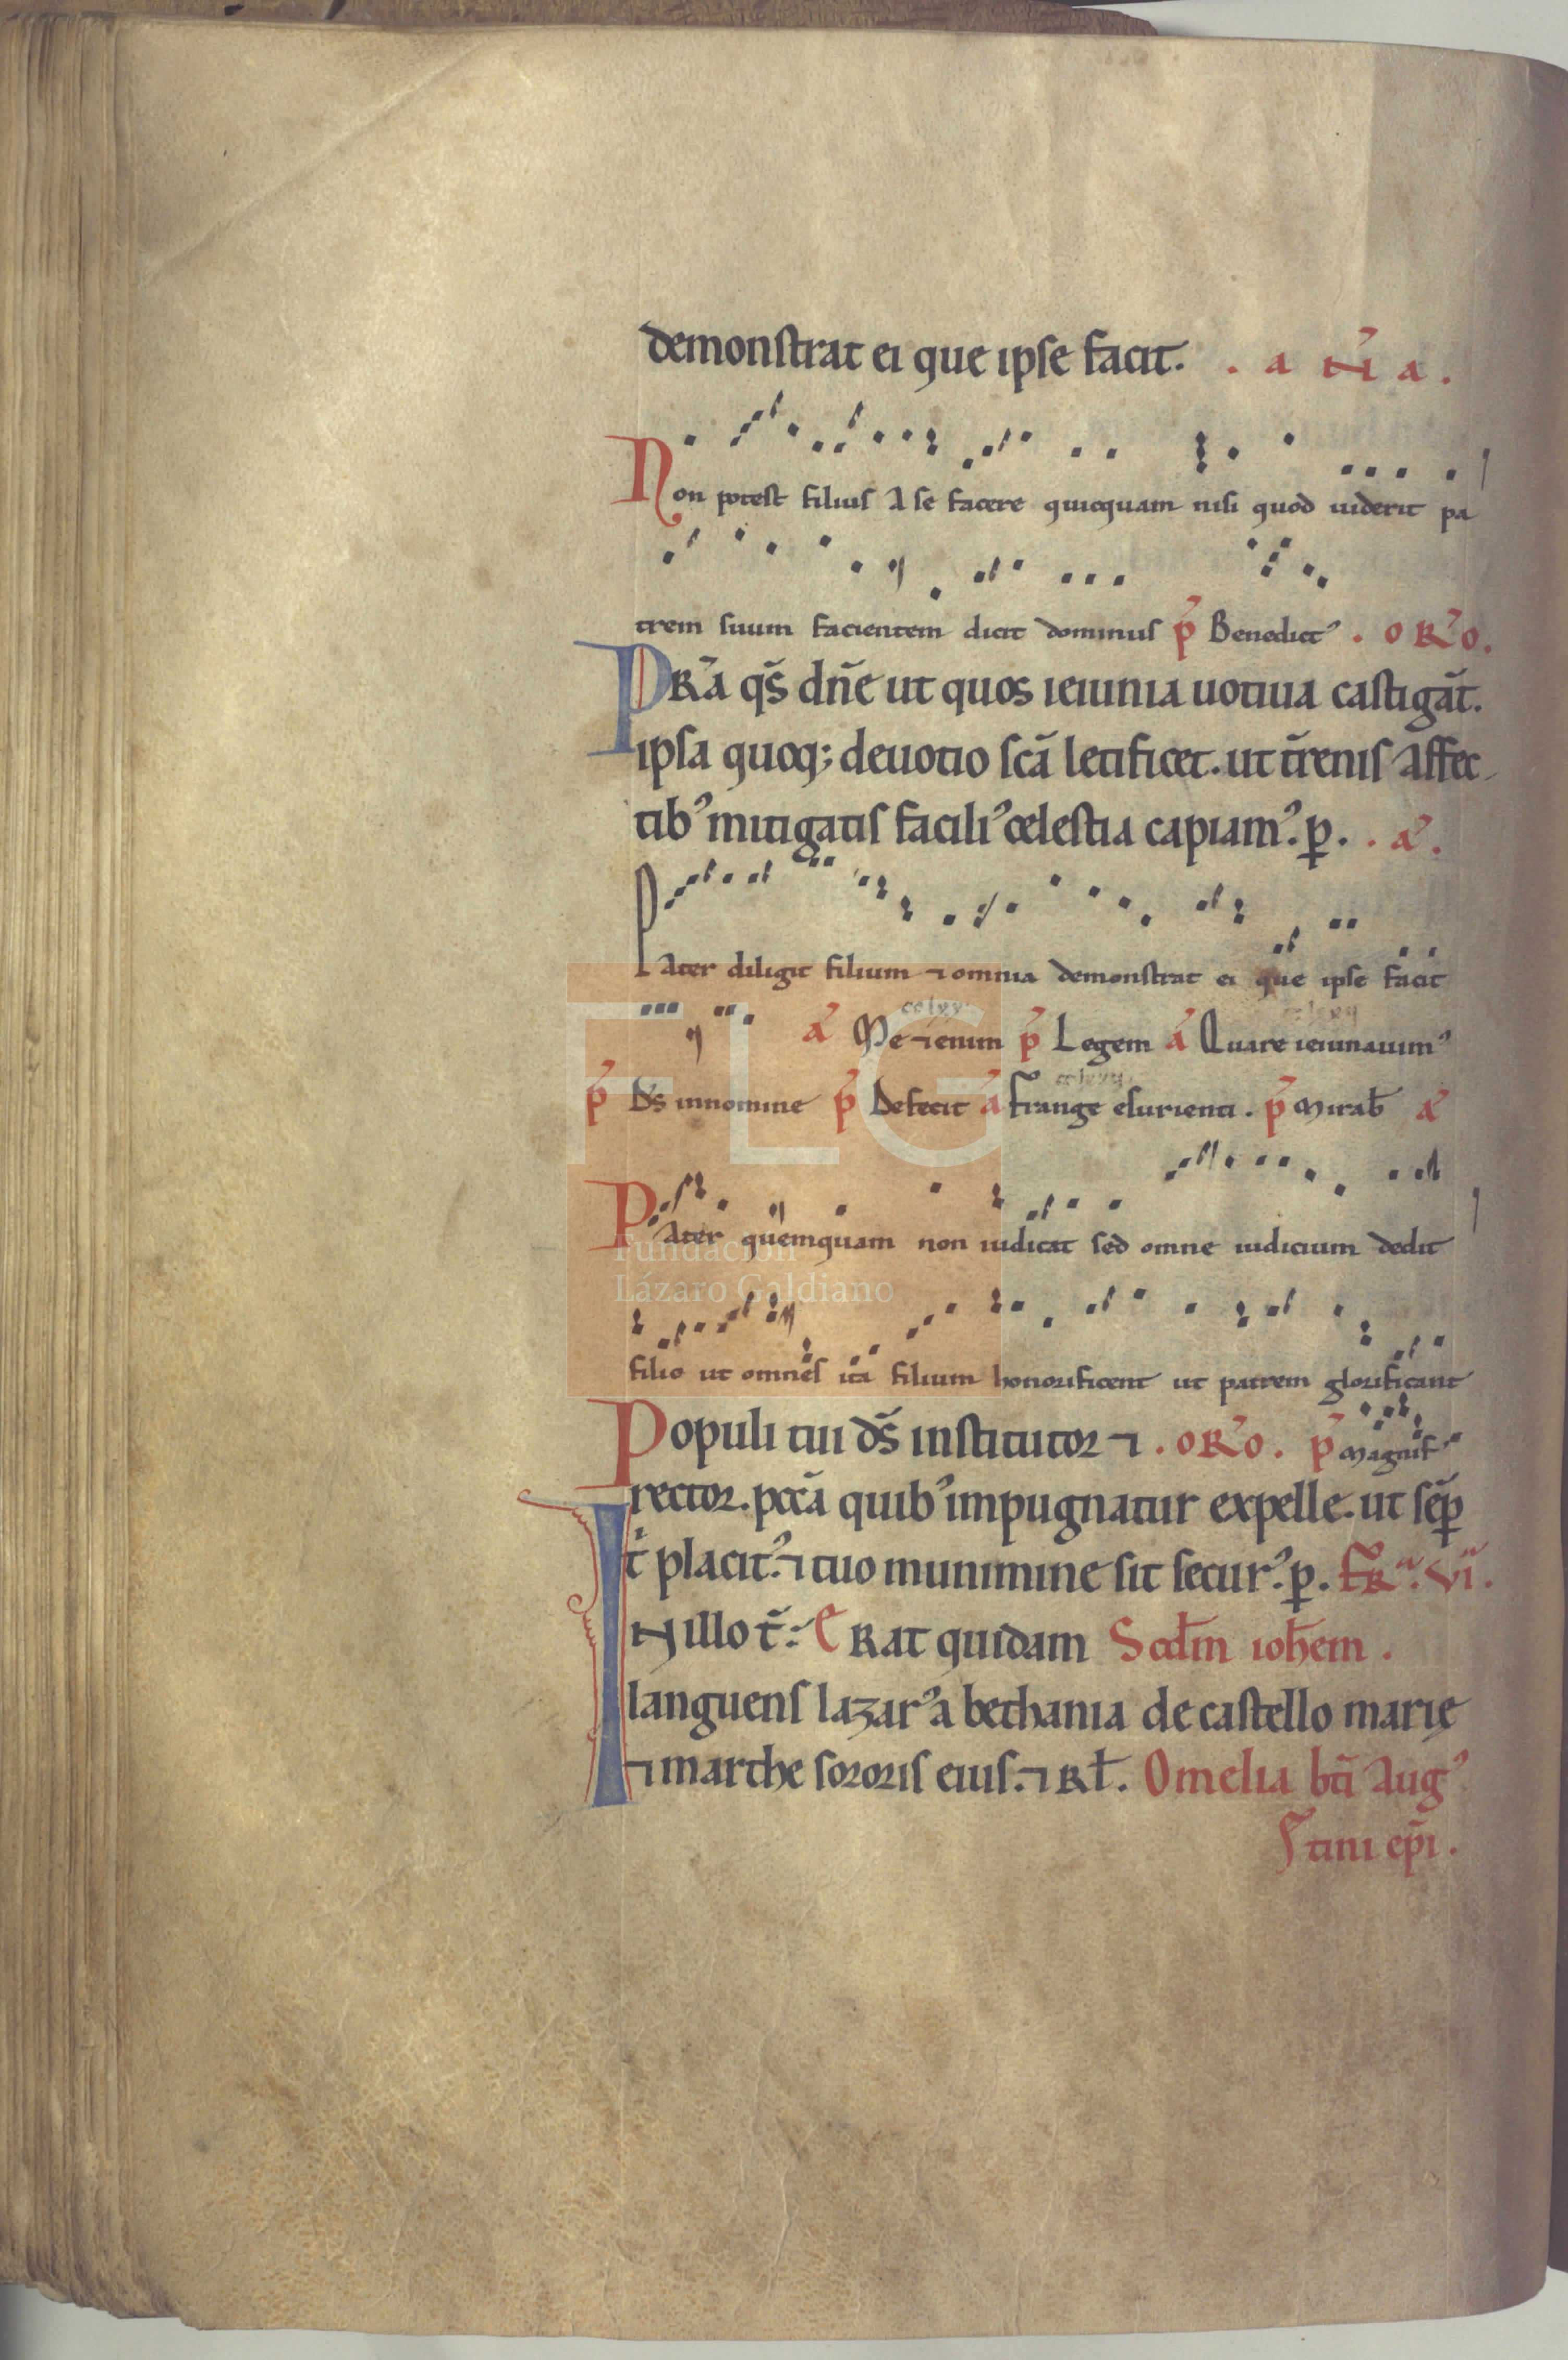 demonstrat ei que ipse facit. . a Ñ a .
Non potest filius a se facere quicquam nisi quod uiderit pa
trem suum facientem dicit dominus p̄ Benedictꝰ . oRꝰo.
PRā qs̄ dn̄e ut quos ieiunia uotiua castigāt.
ipsa quoq; deuotio scā letificet. ut tr̄enis affec
tibꝰ mitigatis faciliꝰ celestia capiamꝰ. ꝑ. . aꝰ.
Pater diligit filium ⁊ omnia demonstrat ei que ipse facit
ā Me ⁊ enim p̄ Legem ā Quare ieiunauimꝰ
p̄ Ds̄ in nomine p̄ Defecit ā Frange esurienti. p̄ Mirab̄ aꝰ
Pater quemquam non iudicat sed omne iudicium dedit
filio ut omnes ita filium honorificent ut patrem glorificant
Populi tui ds̄ institutor ⁊ . oRꝰo. p̄ Magnif̄
rector. pccā quibꝰ impugnatur expelle. ut sēꝑ
t̄ placitꝰ. ⁊ tuo munimine sit securꝰ. ꝑ. FRᵃ. VI.
IN illo t̄: ERat quidam Scd̄m ioh̄em .
languens lazarꝰ a bethania de castello marie
⁊ marthe sororis eius. ⁊ Rł. Omelia bt̄i Augꝰ
stini ep̄i .
FLG
Fundación
Lázaro Galdiano